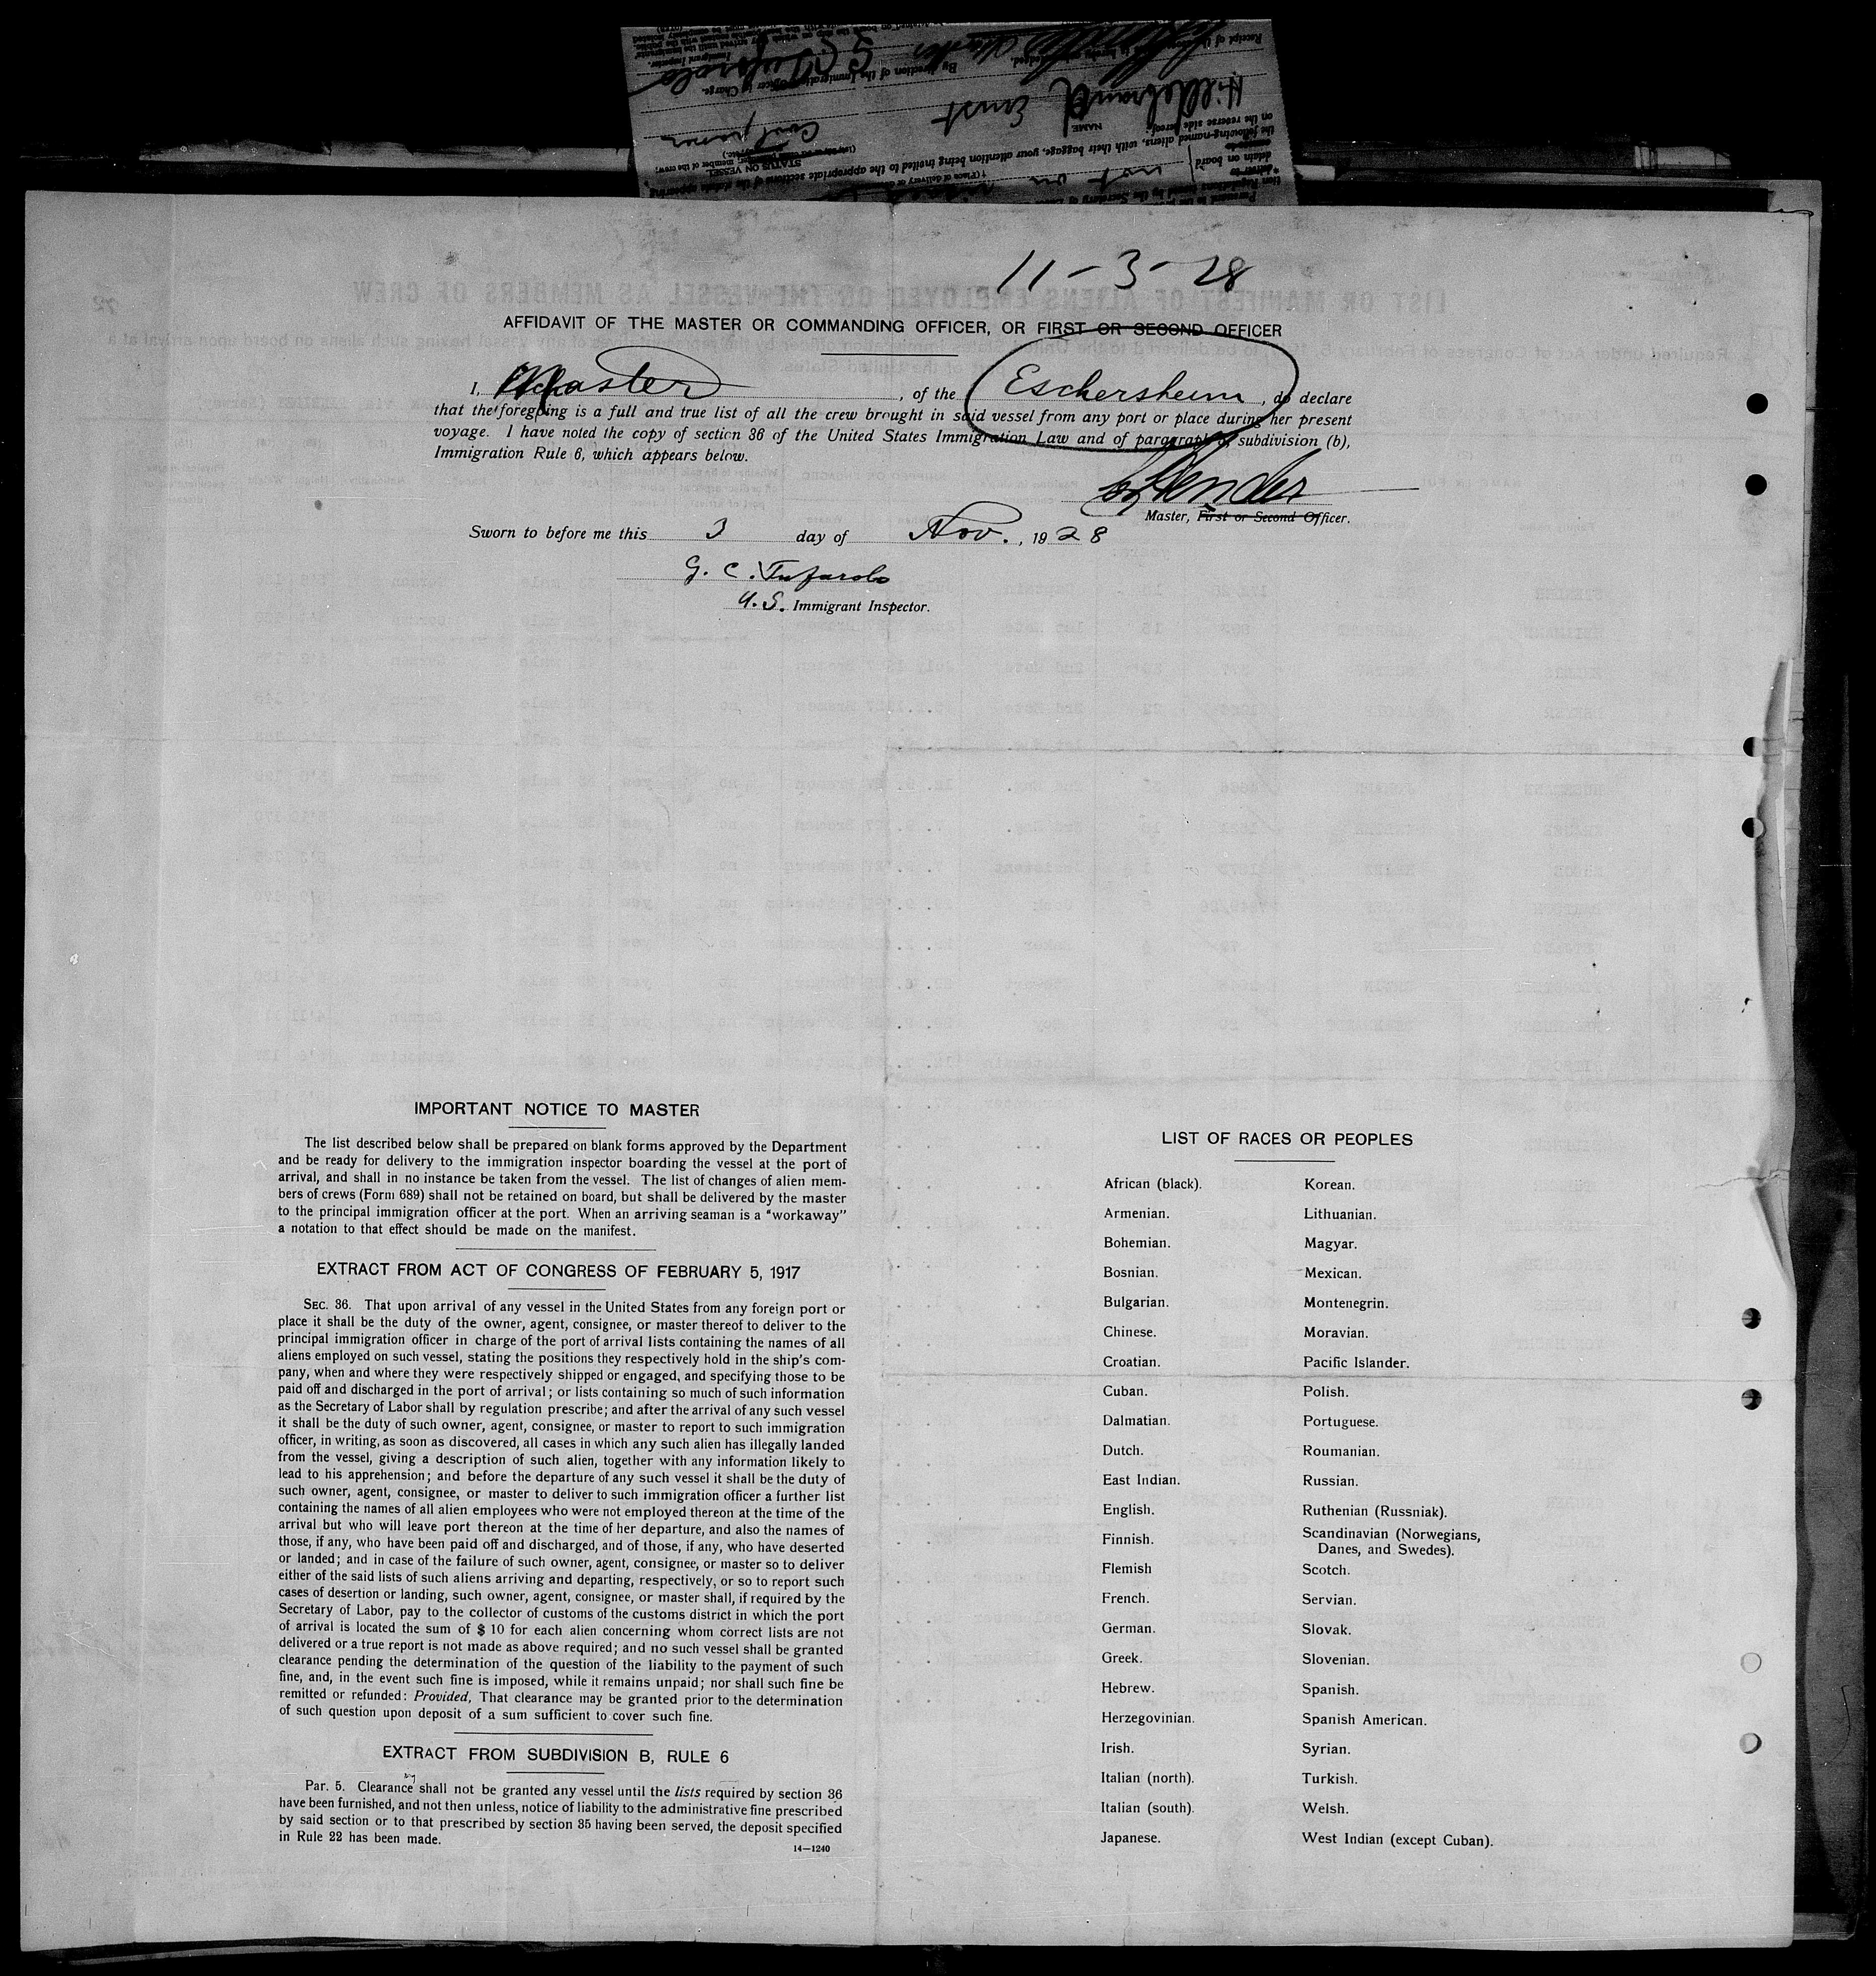 Hildebrand Ernst
NAME
the following-named aliens, with their baggage, your attention being invited to the appropriate sections of the statute appearing
on the reverse side hereof:
STATUS ON VESSEL
By direction of the Immigration Officer in Charge.
Immigrant Inspector.
11-3-28
AFFIDAVIT OF THE MASTER OR COMMANDING OFFICER, OR FIRST OR SECOND OFFICER
I, Master, of the Eschersheim, do declare
that the foregoing is a full and true list of all the crew brought in said vessel from any port or place during her present
voyage. I have noted the copy of section 36 of the United States Immigration Law and of paragraph 5, subdivision (b),
Immigration Rule 6, which appears below.
Master, First or Second Officer.
Sworn to before me this 3 day of Nov., 1928
G. C. Tufarolo
U.S. Immigrant Inspector.
IMPORTANT NOTICE TO MASTER
The list described below shall be prepared on blank forms approved by the Department
and be ready for delivery to the immigration inspector boarding the vessel at the port of
arrival, and shall in no instance be taken from the vessel. The list of changes of alien mem-
bers of crews (Form 689) shall not be retained on board, but shall be delivered by the master
to the principal immigration officer at the port. When an arriving seaman is a "workaway"
a notation to that effect should be made on the manifest.
EXTRACT FROM ACT OF CONGRESS OF FEBRUARY 5, 1917
SEC. 36. That upon arrival of any vessel in the United States from any foreign port or
place it shall be the duty of the owner, agent, consignee, or master thereof to deliver to the
principal immigration officer in charge of the port of arrival lists containing the names of all
aliens employed on such vessel, stating the positions they respectively hold in the ship's com-
pany, when and where they were respectively shipped or engaged, and specifying those to be
paid off and discharged in the port of arrival; or lists containing so much of such information
as the Secretary of Labor shall by regulation prescribe; and after the arrival of any such vessel
it shall be the duty of such owner, agent, consignee, or master to report to such immigration
officer, in writing, as soon as discovered, all cases in which any such alien has illegally landed
from the vessel, giving a description of such alien, together with any information likely to
lead to his apprehension; and before the departure of any such vessel it shall be the duty of
such owner, agent, consignee, or master to deliver to such immigration officer a further list
containing the names of all alien employees who were not employed thereon at the time of the
arrival but who will leave port thereon at the time of her departure, and also the names of
those, if any, who have been paid off and discharged, and of those, if any, who have deserted
or landed; and in case of the failure of such owner, agent, consignee, or master so to deliver
either of the said lists of such aliens arriving and departing, respectively, or so to report such
cases of desertion or landing, such owner, agent, consignee, or master shall, if required by the
Secretary of Labor, pay to the collector of customs of the customs district in which the port
of arrival is located the sum of $ 10 for each alien concerning whom correct lists are not
delivered or a true report is not made as above required; and no such vessel shall be granted
clearance pending the determination of the question of the liability to the payment of such
fine, and, in the event such fine is imposed, while it remains unpaid; nor shall such fine be
remitted or refunded: Provided, That clearance may be granted prior to the determination
of such question upon deposit of a sum sufficient to cover such fine.
EXTRACT FROM SUBDIVISION B, RULE 6
Par. 5. Clearance shall not be granted any vessel until the lists required by section 36
have been furnished, and not then unless, notice of liability to the administrative fine prescribed
by said section or to that prescribed by section 35 having been served, the deposit specified
in Rule 22 has been made.
14—1240
LIST OF RACES OR PEOPLES
African (black).
Armenian.
Bohemian.
Bosnian.
Bulgarian.
Chinese.
Croatian.
Cuban.
Dalmatian.
Dutch.
East Indian.
English.
Finnish.
Flemish
French.
German.
Greek.
Hebrew.
Herzegovinian.
Irish.
Italian (north).
Italian (south).
Japanese.
Korean.
Lithuanian.
Magyar.
Mexican.
Montenegrin.
Moravian.
Pacific Islander.
Polish.
Portuguese.
Roumanian.
Russian.
Ruthenian (Russniak).
Scandinavian (Norwegians,
Danes, and Swedes).
Scotch.
Servian.
Slovak.
Slovenian.
Spanish.
Spanish American.
Syrian.
Turkish.
Welsh.
West Indian (except Cuban).